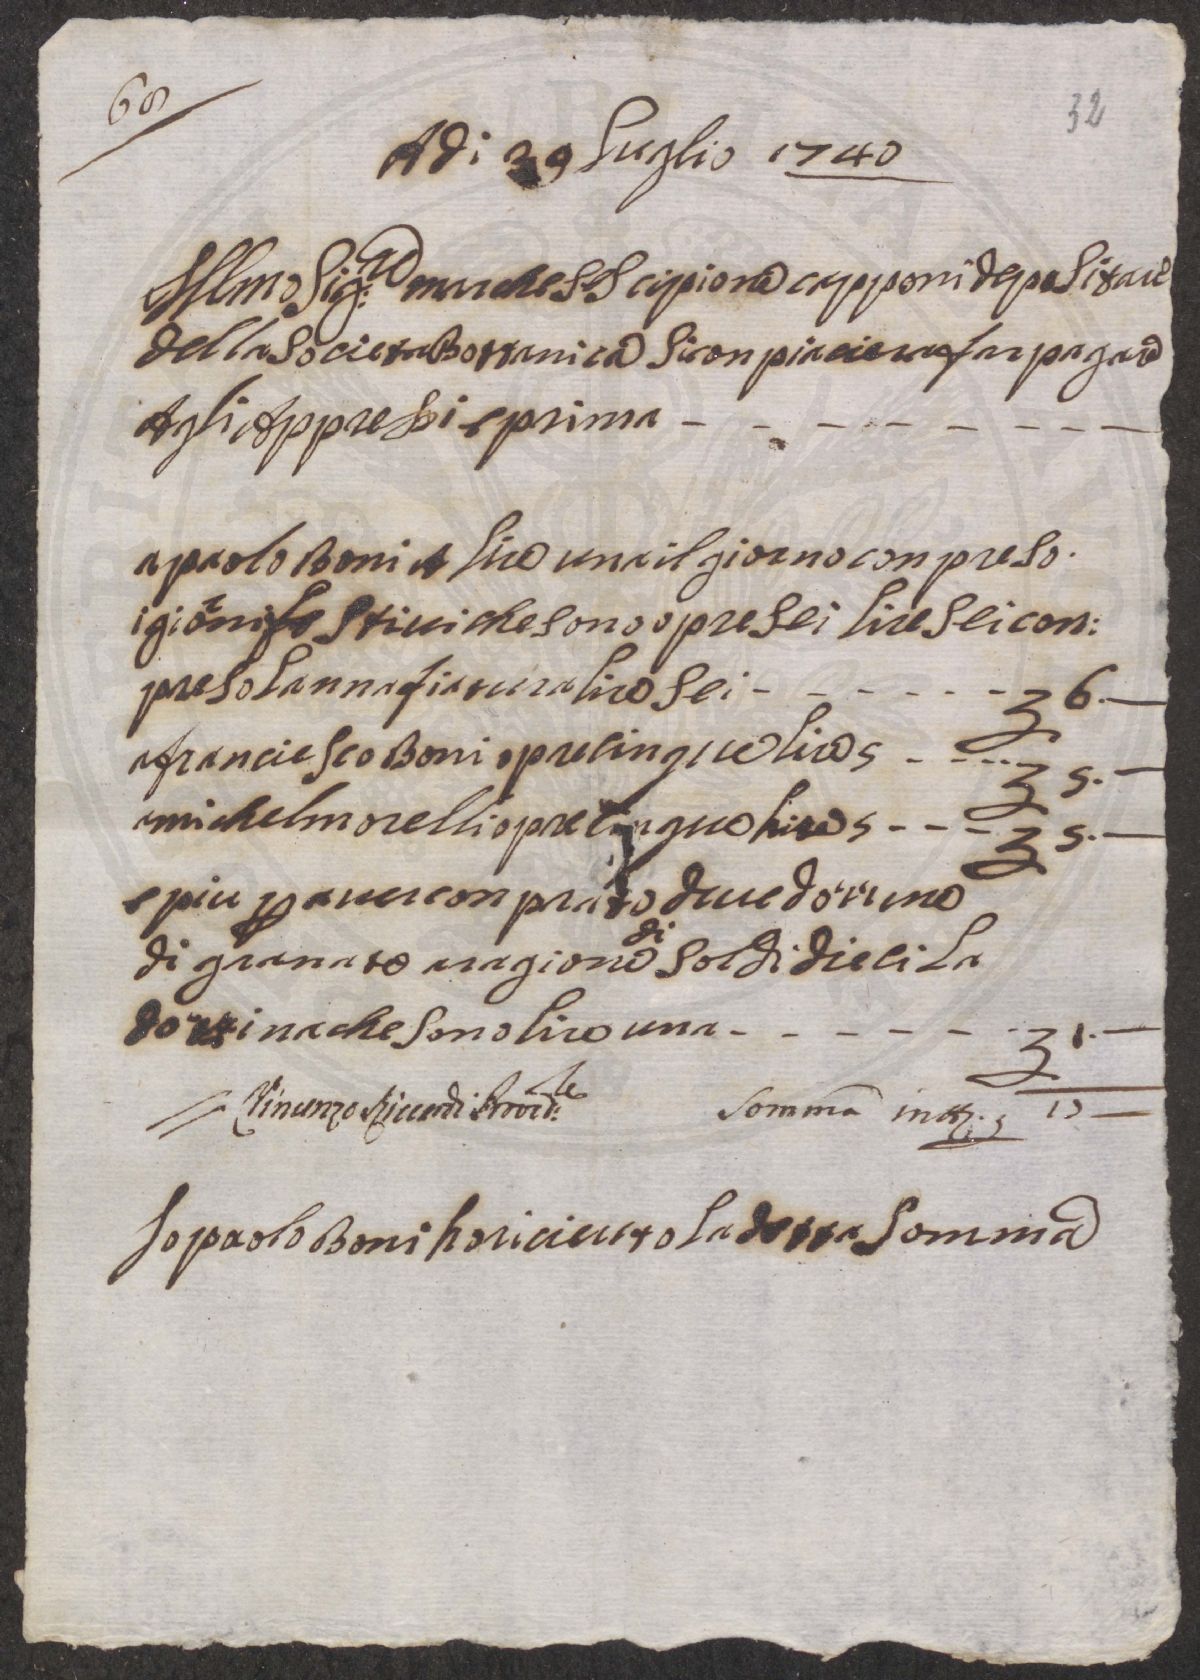 68
32
Adi 30 Luglio 1740
Illmo Sig:re marchese Scipione capponi depositare
della Societa Bottanica Si conpiacierà far pagare
Agli Appressi e prima
a paolo Boni a lire una il giorno conpreso
i giorni festivi che sono opre sei lire sei con:
preso lannafiatura lire sei 6.—
a franciesco Boni opre cinque lire 5 5.—
a michel morelli opre cinque lire 5 5.—
e piu p aver conprato due dozzine
di granate a ragione di Soldi dieci La
dozzina che Sono lire una 1.—
Vincenzo Riccardi Provr.e
Somma in tt. 17 —
Io paolo Boni ho riceuto La detta Somma